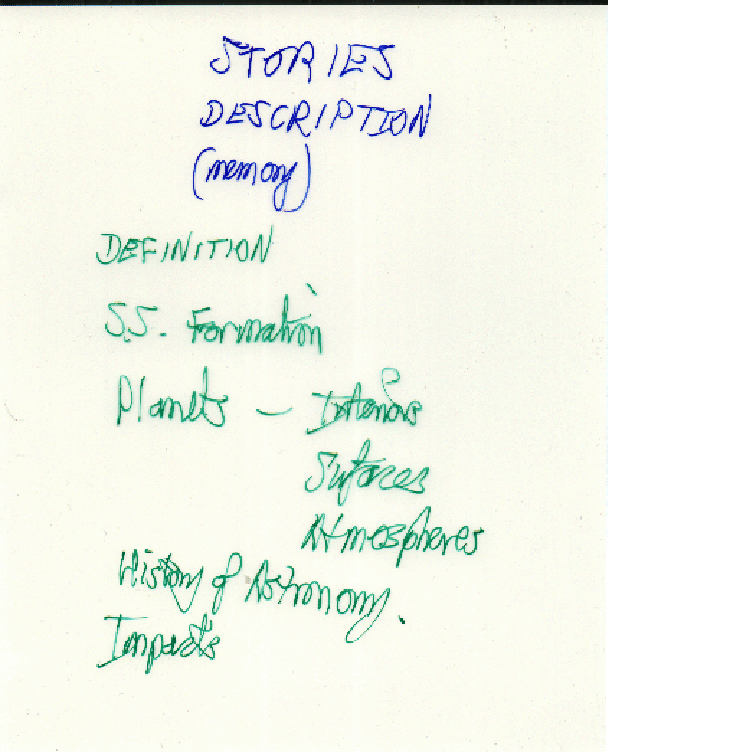 STORIES
DESCRIPTION
(memory)
DEFINITION
S.S. Formation
Planets — Interiors
Surfaces
Atmospheres
History of Astronomy.
Impacts